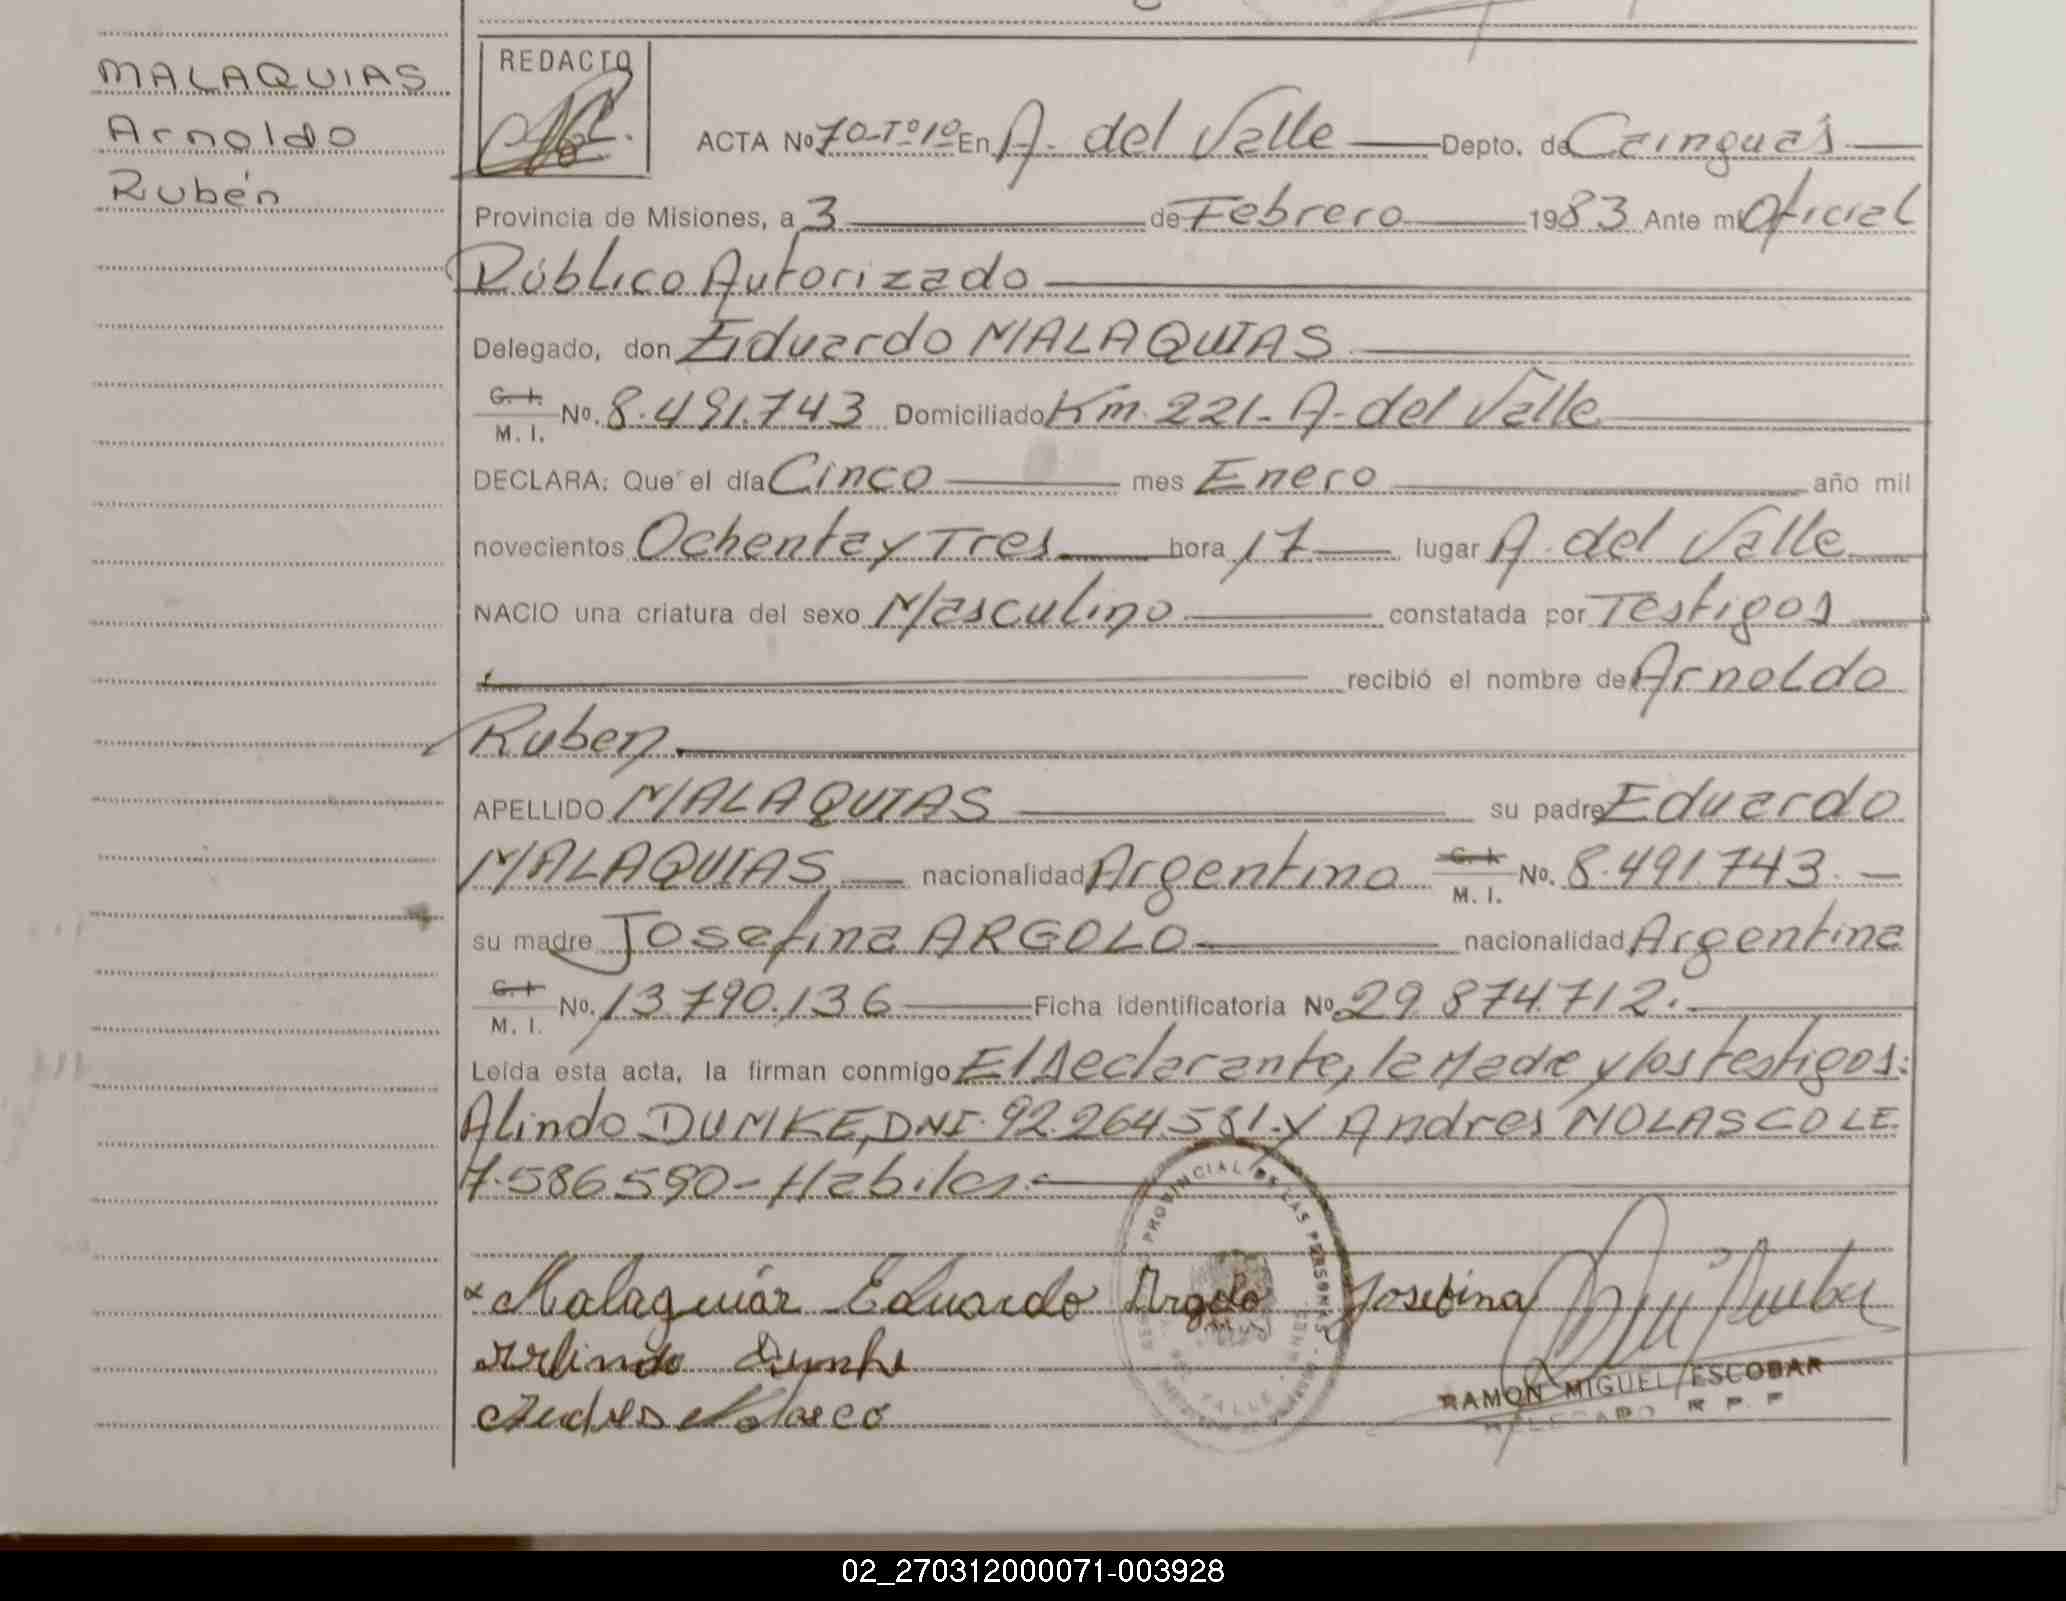 MALAQUIAS
Arnoldo
Rubén
REDACTO
ACTA No 70-Tº1º En A. del Valle Depto. de Cainguás
Provincia de Misiones, a 3 de Febrero 1983 Ante mi Oficial
Público Autorizado
Delegado, don Eduardo MALAQUIAS
C. I.
M. I. No. 8.491.743 Domiciliado Km. 221- A. del Valle
DECLARA: Que el día Cinco mes Enero año mil
novecientos Ochenta y Tres hora 17 lugar A. del Valle
NACIO una criatura del sexo Masculino constatada por Testigos
recibió el nombre de Arnoldo
Ruben
APELLIDO MALAQUIAS su padre Eduardo
MALAQUIAS nacionalidad Argentino C. I. M. I. No. 8.491.743.
su madre Josefina ARGOLO nacionalidad Argentina
C. I.
M. I. No. 13.790.136 Ficha identificatoria No. 29.874.712.
Leída esta acta, la firman conmigo El Declarante, la Madre y los testigos:
Alindo DUMKE, DNI. 92.264.581. y Andres NOLASCO LE.
7.586.590- Habiles.-
PROVINCIAL DE LAS PERSONAS
x Malaquias Eduardo Argolo Josefina
Arlindo Dumke
Andres Nolasco
RAMON MIGUEL ESCOBAR
DELEGADO R. P. P
02_270312000071-003928